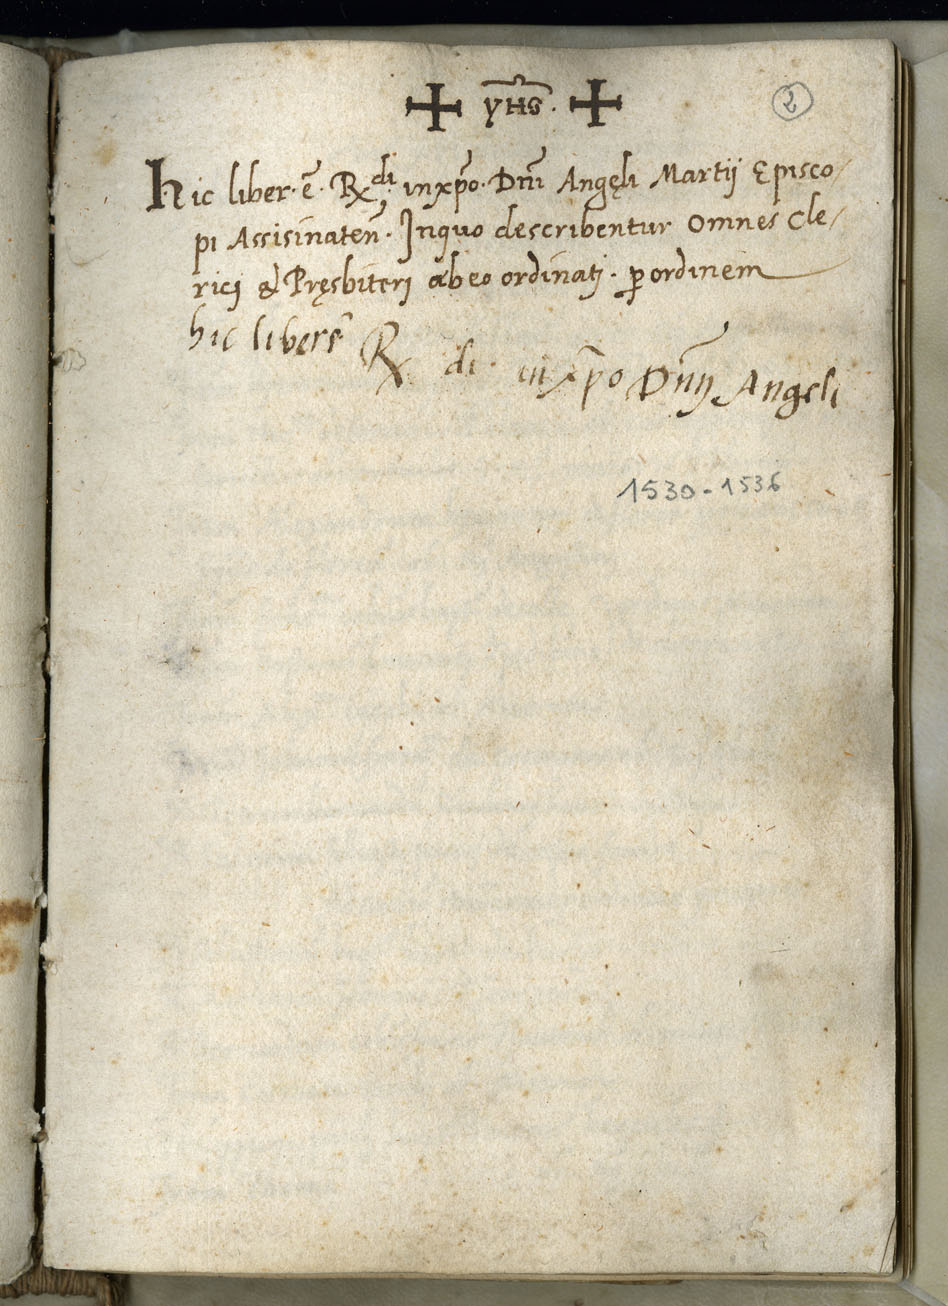 ✠ yHs̄. ✠
2
Hic liber· ē· Rx̄di inxp̄o· Dn̄i Angęli Martij Episco/
pi Assisinaten̄· Inquo describentur Omnes Cle/
ricj & Pręsbiterj abeo ordinatj· ꝑordinem
hic liber ē Rx di· in xp̄o Dn̄ij Angeli
1530-1536